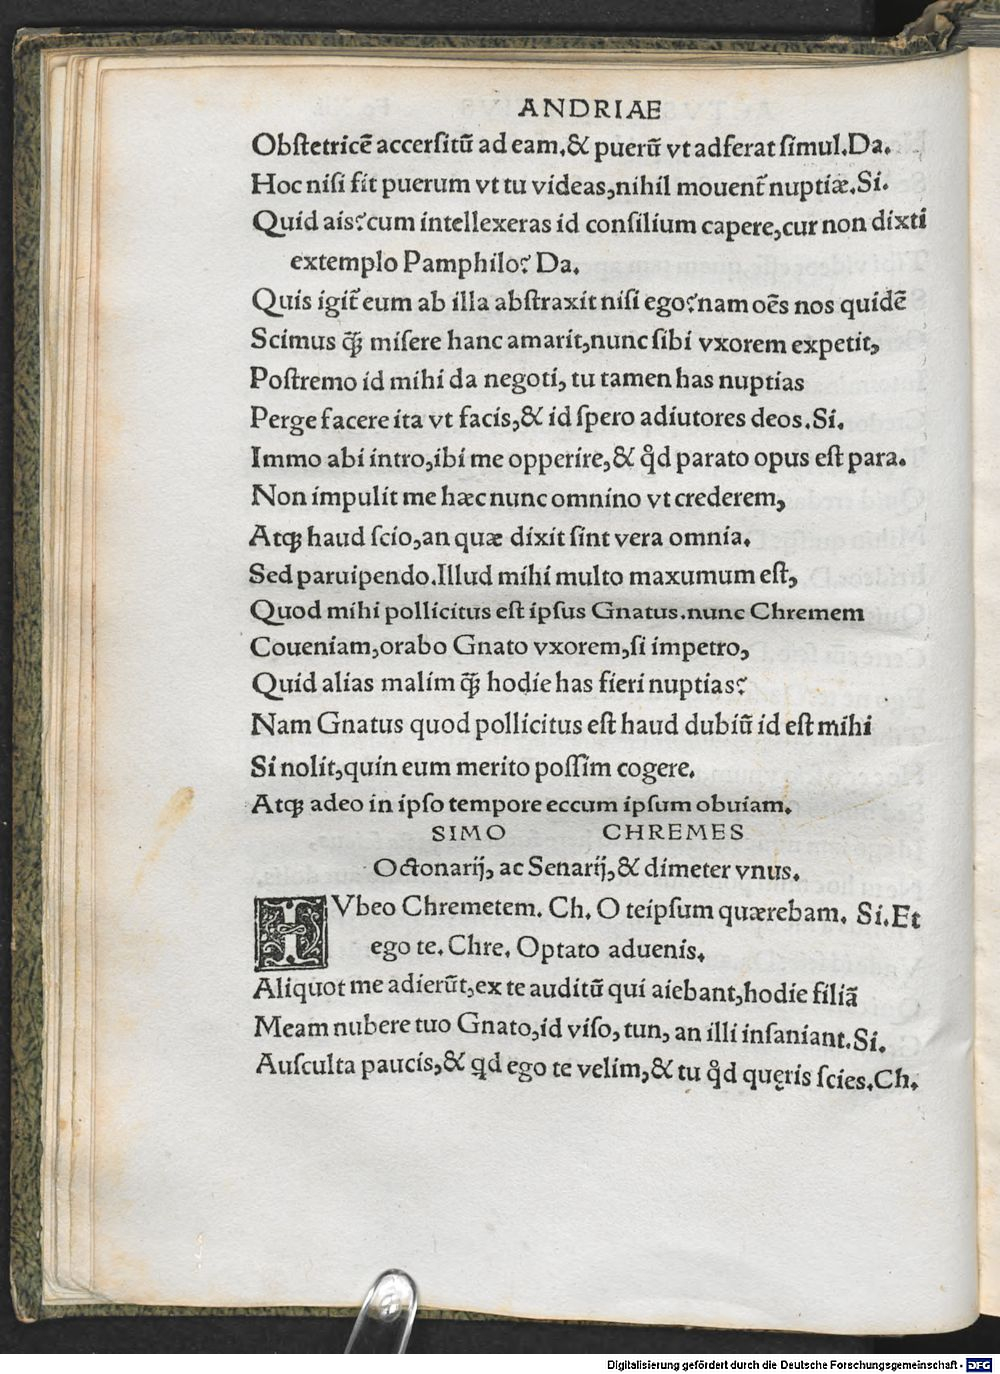 ANDRIAE
Obstetricē accersitū ad eam,& puerū vt adferat simul.Da.
Hoc nisi fit puerum vt tu videas,nihil mouent᷑ nuptiæ.Si.
Quid ais?cum intellexeras id consilium capere,cur non dixti
extemplo Pamphilo? Da.
Quis igit᷑ eum ab illa abstraxit nisi ego?nam oēs nos quidē
Scimus q̃ȝ misere hanc amarit,nunc sibi vxorem expetit,
Postremo id mihi da negoti, tu tamen has nuptias
Perge facere ita vt facis,& id spero adiutores deos.Si.
Immo abi intro,ibi me opperire,& qͥd parato opus est para.
Non impulit me hæc nunc omnino vt crederem,
Atqȝ haud scio,an quæ dixit sint vera omnia.
Sed paruipendo.Illud mihi multo maxumum est,
Quod mihi pollicitus est ipsus Gnatus.nunc Chremem
Coueniam,orabo Gnato vxorem,si impetro,
Quid alias malim q̃ȝ hodie has fieri nuptias?
Nam Gnatus quod pollicitus est haud dubiū id est mihi
Si nolit,quin eum merito possim cogere.
Atqȝ adeo in ipso tempore eccum ipsum obuiam.
SIMO CHREMES
Octonarij, ac Senarij,& dimeter vnus.
IVbeo Chremetem. Ch. O teipsum quærebam. Si.Et
ego te. Chre. Optato aduenis.
Aliquot me adierūt,ex te auditū qui aiebant,hodie filiā
Meam nubere tuo Gnato,id viso, tun, an illi insaniant.Si.
Ausculta paucis,& qd ego te velim,& tu qͥd quęris scies.Ch.
Digitalisierung gefördert durch die Deutsche Forschungsgemeinschaft - DFG